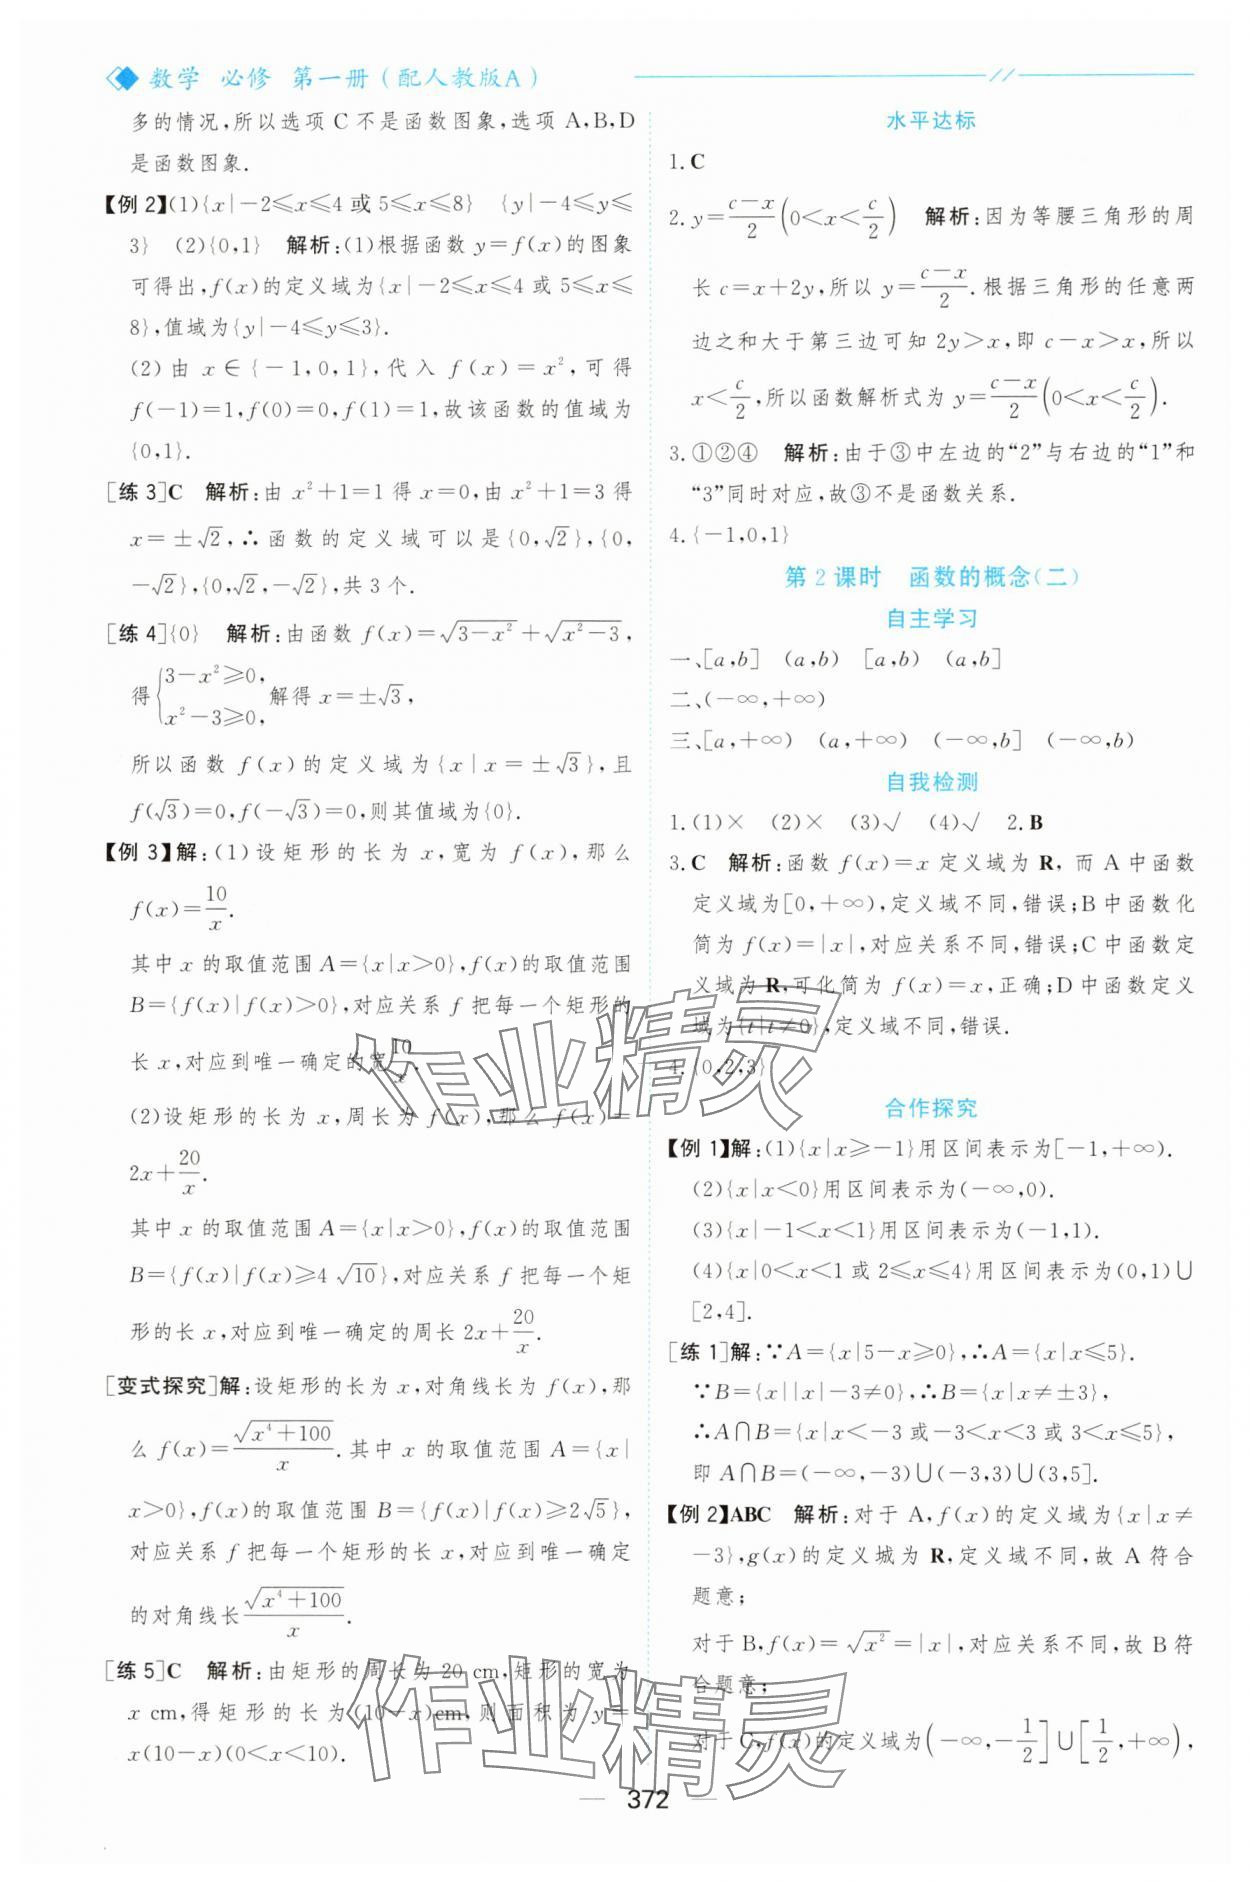 数学 必修 第一册(配人教版A)
多的情况,所以选项 C 不是函数图象,选项 A,B,D
是函数图象.
【例 2】(1){x|-2≤x≤4 或 5≤x≤8} {y|-4≤y≤
3} (2){0,1} 解析:(1)根据函数 y=f(x)的图象
可得出,f(x)的定义域为{x|-2≤x≤4 或 5≤x≤
8},值域为{y|-4≤y≤3}.
(2)由 x∈{-1,0,1},代入 f(x)=x²,可得
f(-1)=1,f(0)=0,f(1)=1,故该函数的值域为
{0,1}.
[练 3]C 解析:由 x²+1=1 得 x=0,由 x²+1=3 得
x=±√2,∴函数的定义域可以是{0,√2},{0,
-√2},{0,√2,-√2},共 3 个.
[练 4]{0} 解析:由函数 f(x)=√(3-x²)+√(x²-3),
得{3-x²≥0, x²-3≥0, 解得 x=±√3,
所以函数 f(x)的定义域为{x|x=±√3},且
f(√3)=0,f(-√3)=0,则其值域为{0}.
【例 3】解:(1)设矩形的长为 x,宽为 f(x),那么
f(x)=10/x.
其中 x 的取值范围 A={x|x>0},f(x)的取值范围
B={f(x)|f(x)>0},对应关系 f 把每一个矩形的
长 x,对应到唯一确定的宽10/x.
(2)设矩形的长为 x,周长为 f(x),那么 f(x)=
2x+20/x.
其中 x 的取值范围 A={x|x>0},f(x)的取值范围
B={f(x)|f(x)≥4√10},对应关系 f 把每一个矩
形的长 x,对应到唯一确定的周长 2x+20/x.
[变式探究]解:设矩形的长为 x,对角线长为 f(x),那
么 f(x)=√(x⁴+100)/x.其中 x 的取值范围 A={x|
x>0},f(x)的取值范围 B={f(x)|f(x)≥2√5},
对应关系 f 把每一个矩形的长 x,对应到唯一确定
的对角线长√(x⁴+100)/x.
[练 5]C 解析:由矩形的周长为 20 cm,矩形的宽为
x cm,得矩形的长为(10-x)cm,则面积为 y=
x(10-x)(0<x<10).
水平达标
1.C
2.y=(c-x)/2(0<x<c/2) 解析:因为等腰三角形的周
长 c=x+2y,所以 y=(c-x)/2.根据三角形的任意两
边之和大于第三边可知 2y>x,即 c-x>x,所以
x<c/2,所以函数解析式为 y=(c-x)/2(0<x<c/2).
3.①②④ 解析:由于③中左边的“2”与右边的“1”和
“3”同时对应,故③不是函数关系.
4.{-1,0,1}
第 2 课时 函数的概念(二)
自主学习
一、[a,b] (a,b) [a,b) (a,b]
二、(-∞,+∞)
三、[a,+∞) (a,+∞) (-∞,b] (-∞,b)
自我检测
1.(1)× (2)× (3)√ (4)√ 2.B
3.C 解析:函数 f(x)=x 定义域为 R,而 A 中函数
定义域为[0,+∞),定义域不同,错误;B 中函数化
简为 f(x)=|x|,对应关系不同,错误;C 中函数定
义域为 R,可化简为 f(x)=x,正确;D 中函数定义
域为{t|t≠0},定义域不同,错误.
4.{0,2,3}
合作探究
【例 1】解:(1){x|x≥-1}用区间表示为[-1,+∞).
(2){x|x<0}用区间表示为(-∞,0).
(3){x|-1<x<1}用区间表示为(-1,1).
(4){x|0<x<1 或 2≤x≤4}用区间表示为(0,1)∪
[2,4].
[练 1]解:∵A={x|5-x≥0},∴A={x|x≤5}.
∵B={x||x|-3≠0},∴B={x|x≠±3},
∴A∩B={x|x<-3 或-3<x<3 或 3<x≤5},
即 A∩B=(-∞,-3)∪(-3,3)∪(3,5].
【例 2】ABC 解析:对于 A,f(x)的定义域为{x|x≠
-3},g(x)的定义城为 R,定义域不同,故 A 符合
题意;
对于 B,f(x)=√x²=|x|,对应关系不同,故 B 符
合题意;
对于 C,f(x)的定义域为(-∞,-1/2]∪[1/2,+∞),
372
作业精灵
作业精灵